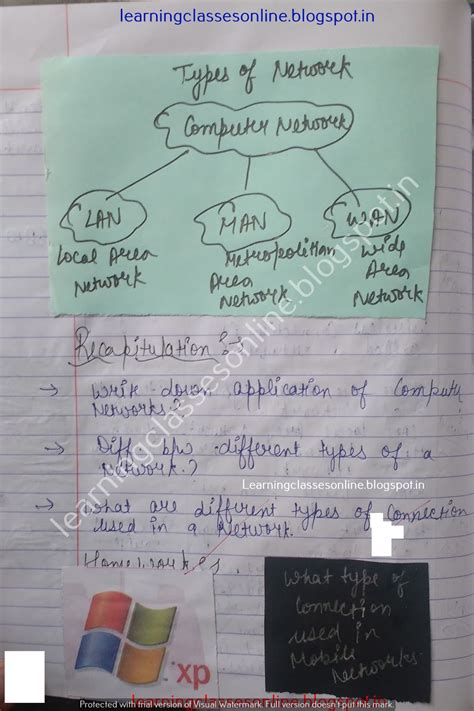 learningclassesonline.blogspot.in
Types of Network
Computer Network
LAN
MAN
WAN
Local Area
Network
Metropolitian
Area
Network
Wide
Area
Network
learningclassesonline.blogspot.in
Recapitulation :-
→ Write down application of Computer
Networks?
→ Diff b/w different types of a
Network.?
Learningclassesonline.blogspot.in
→ What are different types of Connection
used in a Network.
Homework :
What type of
Connection
used in
Mobile
Networks.
xp
Protected with trial version of Visual Watermark. Full version doesn't put this mark.
learningclassesonline.blogspot.in